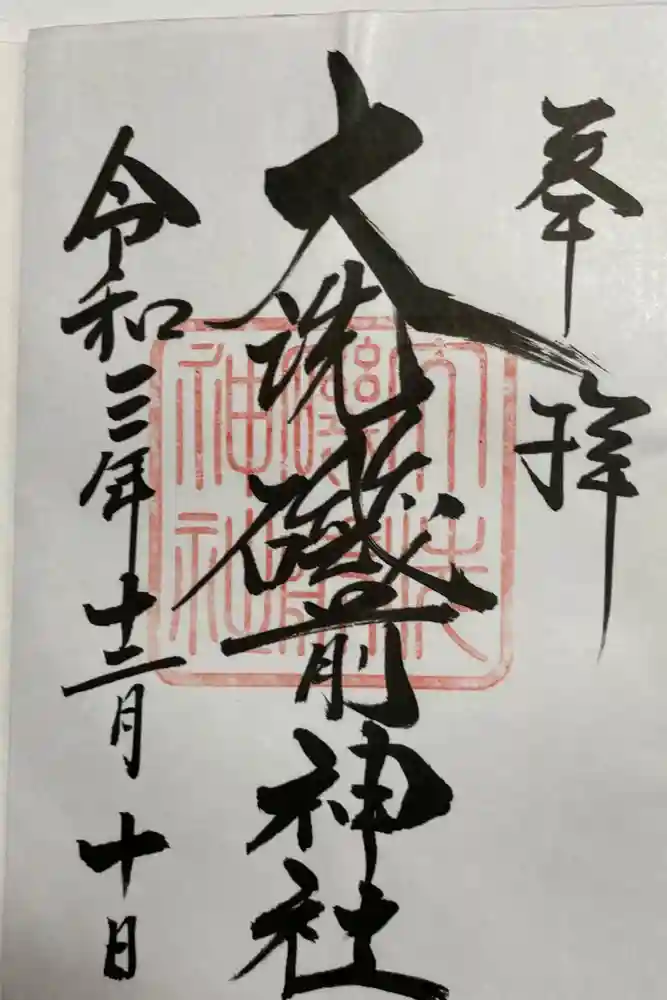 奉拝
大洗磯前神社
大洗磯前神社
令和三年十二月十日